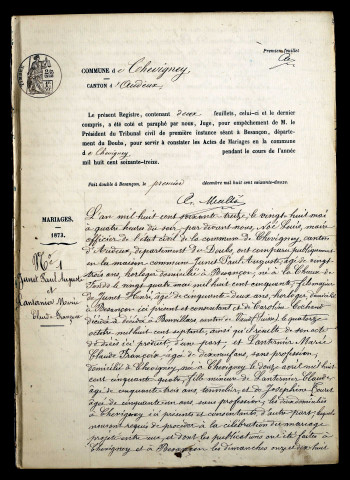 Premier feuillet
COMMUNE d e Chevigney
CANTON d 'Audeux
Le présent Registre, contenant deux feuillets, celui-ci et le dernier
compris, a été coté et paraphé par nous, Juge, pour empêchement de M. le
Président du Tribunal civil de première instance séant à Besançon, départe-
ment du Doubs, pour servir à constater les Actes de Mariages en la commune
d e Chevigney pendant le cours de l'année
mil huit cent soixante-treize.
Fait double à Besançon, le premier décembre mil huit cent soixante-douze.
MARIAGES.
1873.
N° 1
Junet Paul Auguste
et
Lantanier Marie
Claude Françoise
L'an mil huit cent soixante treize, le vingt huit mai
à quatre heures du soir, par devant nous, Noé Louis, maire
officier de l'état civil de la commune de Chevigney, canton
d'Audeux, département du Doubs, ont comparu publiquement
en la maison commune Junet Paul Auguste, âgé de vingt
trois ans, horloger, domicilié à Besançon, né à la Chaux de
Fonds le vingt quatre mai mil huit cent cinquante, fils majeur
de Junet Henri, âgé de cinquante-deux ans, horloger, domicilié
à Besançon ici présent et consentant et de Caroline
décédée à le quatorze
octobre mil huit cent septante, ainsi qu'il résulte de son acte
de décès ici produit, d'une part, et Lantanier Marie
Claude Françoise âgée de dix neuf ans, sans profession,
domiciliée à Chevigney, née à Chevigney le douze avril mil huit
cent cinquante quatre, fille mineure de Lantanier Claude
âgé de cinquante deux ans et de Joséphine
âgée de cinquante un ans, sans profession, les deux domiciliés
à Chevigney ici présents et consentants, d'autre part, lesquels
nous ont requis de procéder à la célébration du mariage
projeté entre eux, et dont les publications ont été faites à
Chevigney et à Besançon les dimanches onze et dix huit